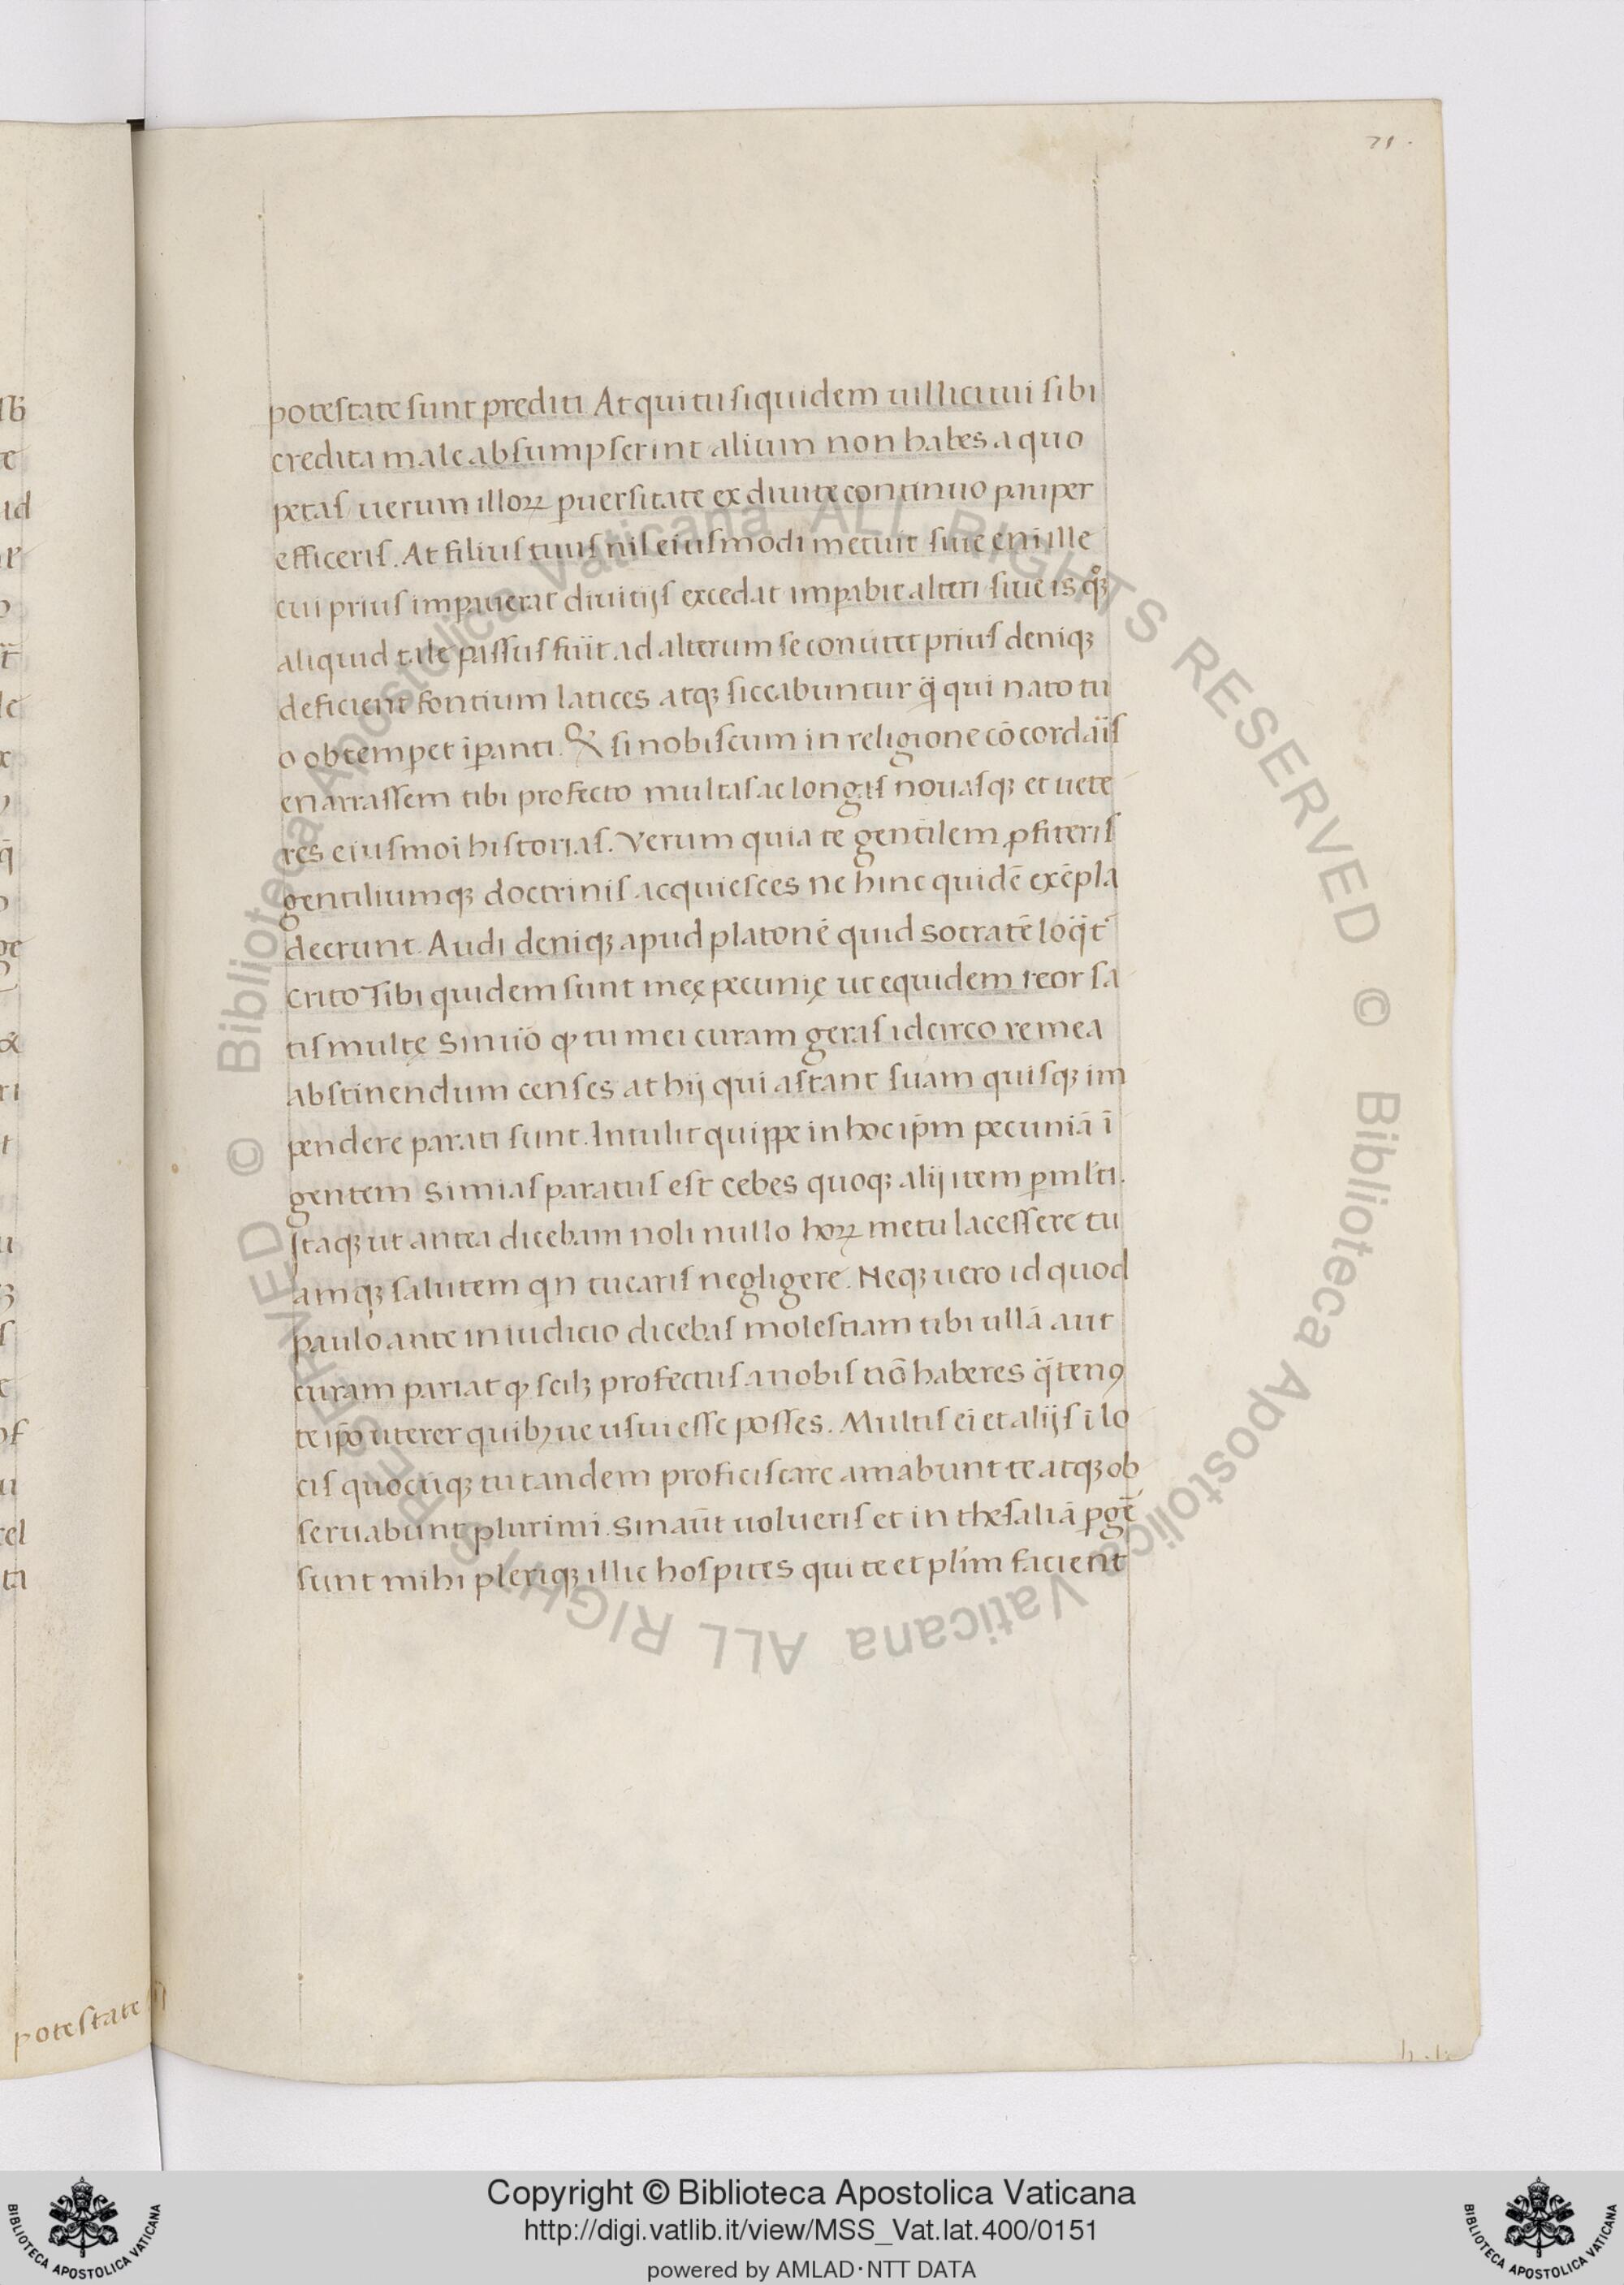 71.
potestate sunt prediti. At qui tu siquidem uillici tui sibi
credita male absumpserint alium non habes a quo
petas uerum illoꝝ ꝑuersitate ex diuite continuo pauper
efficeris. At filius tuus nil eiusmodi metuit siue eni ille
cui prius impauerat diuitijs excedat impabit alteri siue is
aliquid tale passus fuit ad alterum se conutet prius deniqꝫ
deficient fontium latices atqꝫ siccabuntur q̃ qui nato tu
o obtempet iꝑanti. & si nobiscum in religione cōcordais
enarrassem tibi profecto multas ac longas nouasqꝫ et uete
res eiusmoi historias. Verum quia te gentilem ꝓfiteris
gentiliumqꝫ doctrinis acquiesces ne hinc quidē exēpla
deerunt. Audi deniqꝫ apud platonē quid socratē loq̃t
crito Tibi quidem sunt meę pecunię ut equidem reor sa
tis multę Sin uo ꝙ tu mei curam geras idcirco re mea
abstinendum censes at hij qui astant suam quisqꝫ im
pendere parati sunt. Intulit quippe in hoc ip̄m pecuniā ī
gentem Simias paratus est cebes quoqꝫ alij item ꝑmlti.
Itaqꝫ ut antea dicebam noli nullo hoꝝ metu lacessere tu
amqꝫ salutem qn tuearis negligere. Neqꝫ uero id quod
paulo ante in iudicio dicebas molestiam tibi ullā aut
curam pariat ꝙ scilꝫ profectus a nobis nō haberes q̃tenꝰ
te ip̄o uterer quibꝫue usui esse posses. Multis ei et alijs ī lo
cis quocūqꝫ tu tandem proficiscare amabunt te atqꝫ ob
seruabunt plurimi. Sin aūt uolueris et in thesaliā ꝑgē
sunt mihi pleriqꝫ illic hospites qui te et plīm facient
potestate
Copyright © Biblioteca Apostolica Vaticana
http://digi.vatlib.it/view/MSS_Vat.lat.400/0151
powered by AMLAD·NTT DATA
BIBLIOTECA APOSTOLICA VATICANA
BIBLIOTECA APOSTOLICA VATICANA
© Biblioteca Apostolica Vaticana ALL RIGHTS RESERVED © Biblioteca Apostolica Vaticana ALL RIGHTS RESERVED